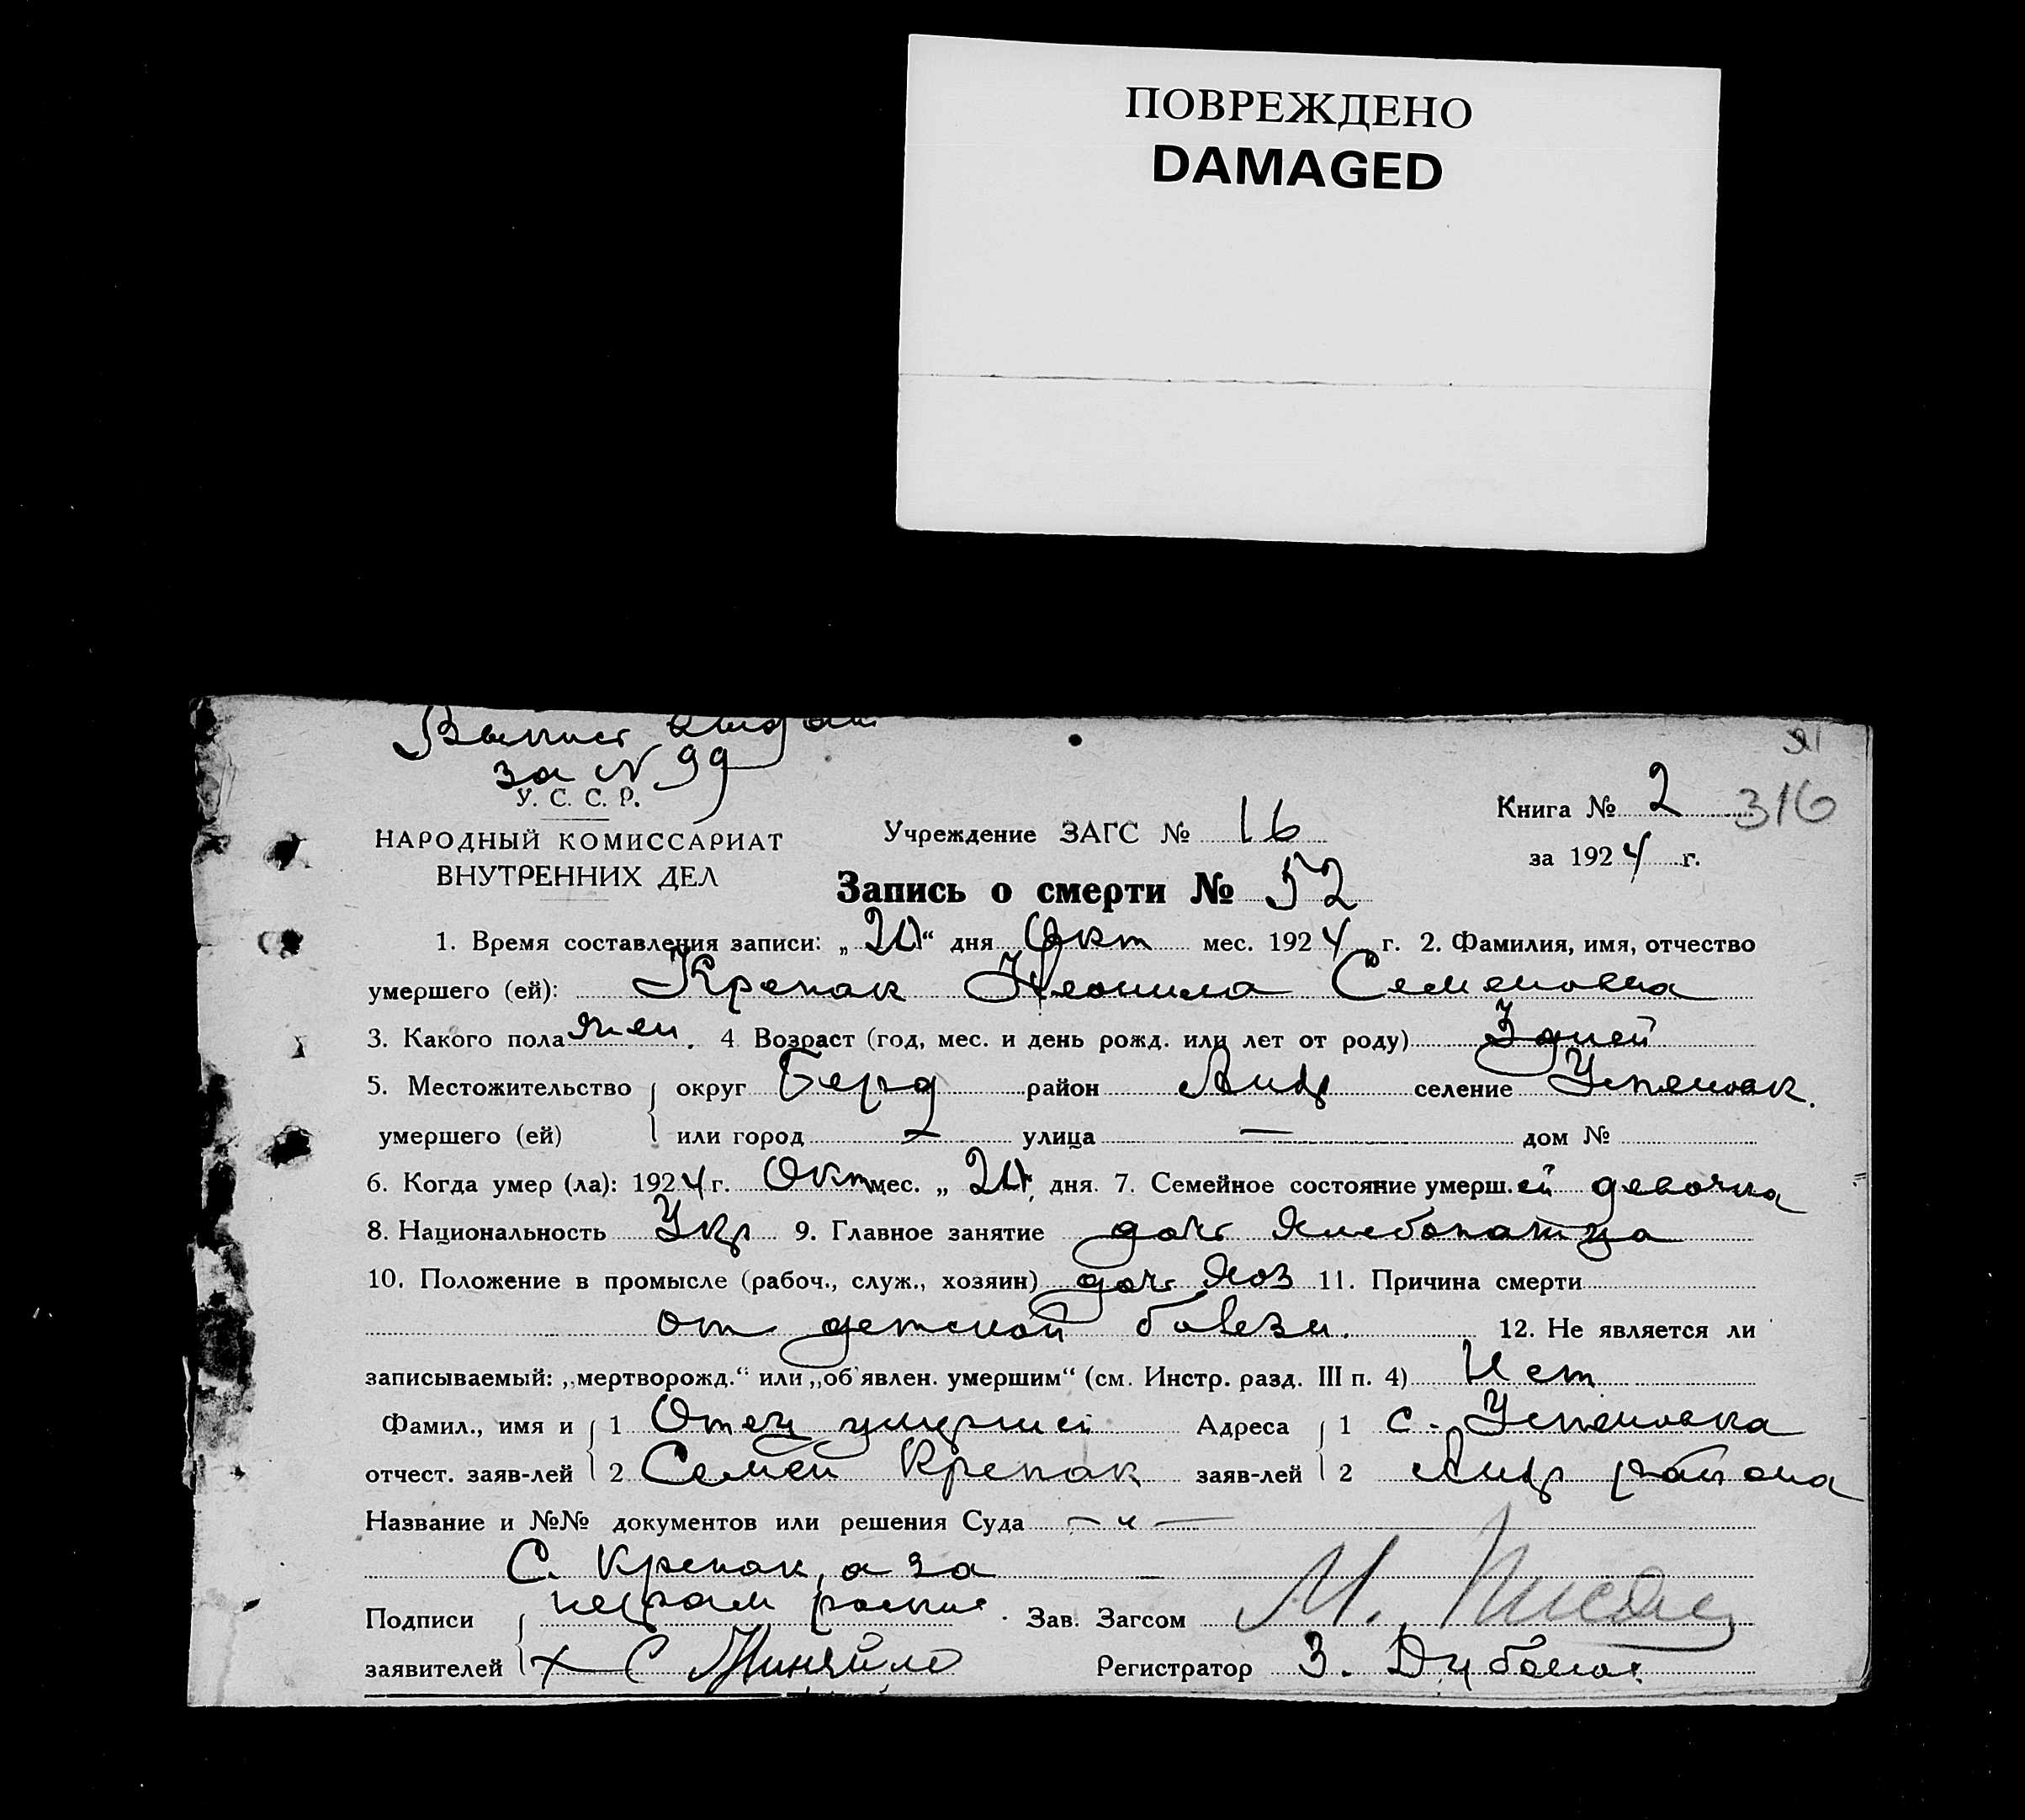 ПОВРЕЖДЕНО
DAMAGED
Выпись
за № 99
316
У. С. С. Р.
НАРОДНЫЙ КОМИССАРИАТ
ВНУТРЕННИХ ДЕЛ
Учреждение ЗАГС № 16
Книга № 2
за 1924 г.
Запись о смерти № 52
1. Время составления записи: „20“ дня Окт мес. 1924 г. 2. Фамилия, имя, отчество
умершего (ей): Крепак Неонила Семеновна
3. Какого пола жен. 4 Возраст (год, мес. и день рожд. или лет от роду) 3 дней
5. Местожительство округ Берд район Анд селение Успеновк.
умершего (ей) или город — улица — дом №
6. Когда умер (ла): 1924 г. Окт мес. „ 20 „ дня. 7. Семейное состояние умерш.ей девочка
8. Национальность Укр 9. Главное занятие доч. хлебопашца
10. Положение в промысле (рабоч., служ., хозяин) доч. хоз 11. Причина смерти
от детской болезн.
12. Не является ли
записываемый: „мертворожд.“ или „об'явлен. умершим“ (см. Инстр. разд. III п. 4) Нет
Фамил., имя и 1 Отец умершей Адреса 1 с. Успеновка
отчест. заяв-лей 2 Семен Крепак заяв-лей 2 Андр района
Название и №№ документов или решения Суда — „ —
С. Крепак, а за
неграм распис.
Подписи Зав. Загсом М.
заявителей х С Миняйло Регистратор З.